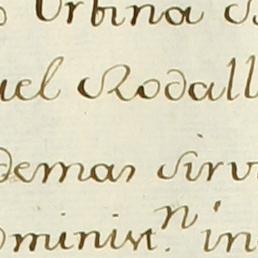 Urbina
uel Rodall
demas sirv
ominist.n in